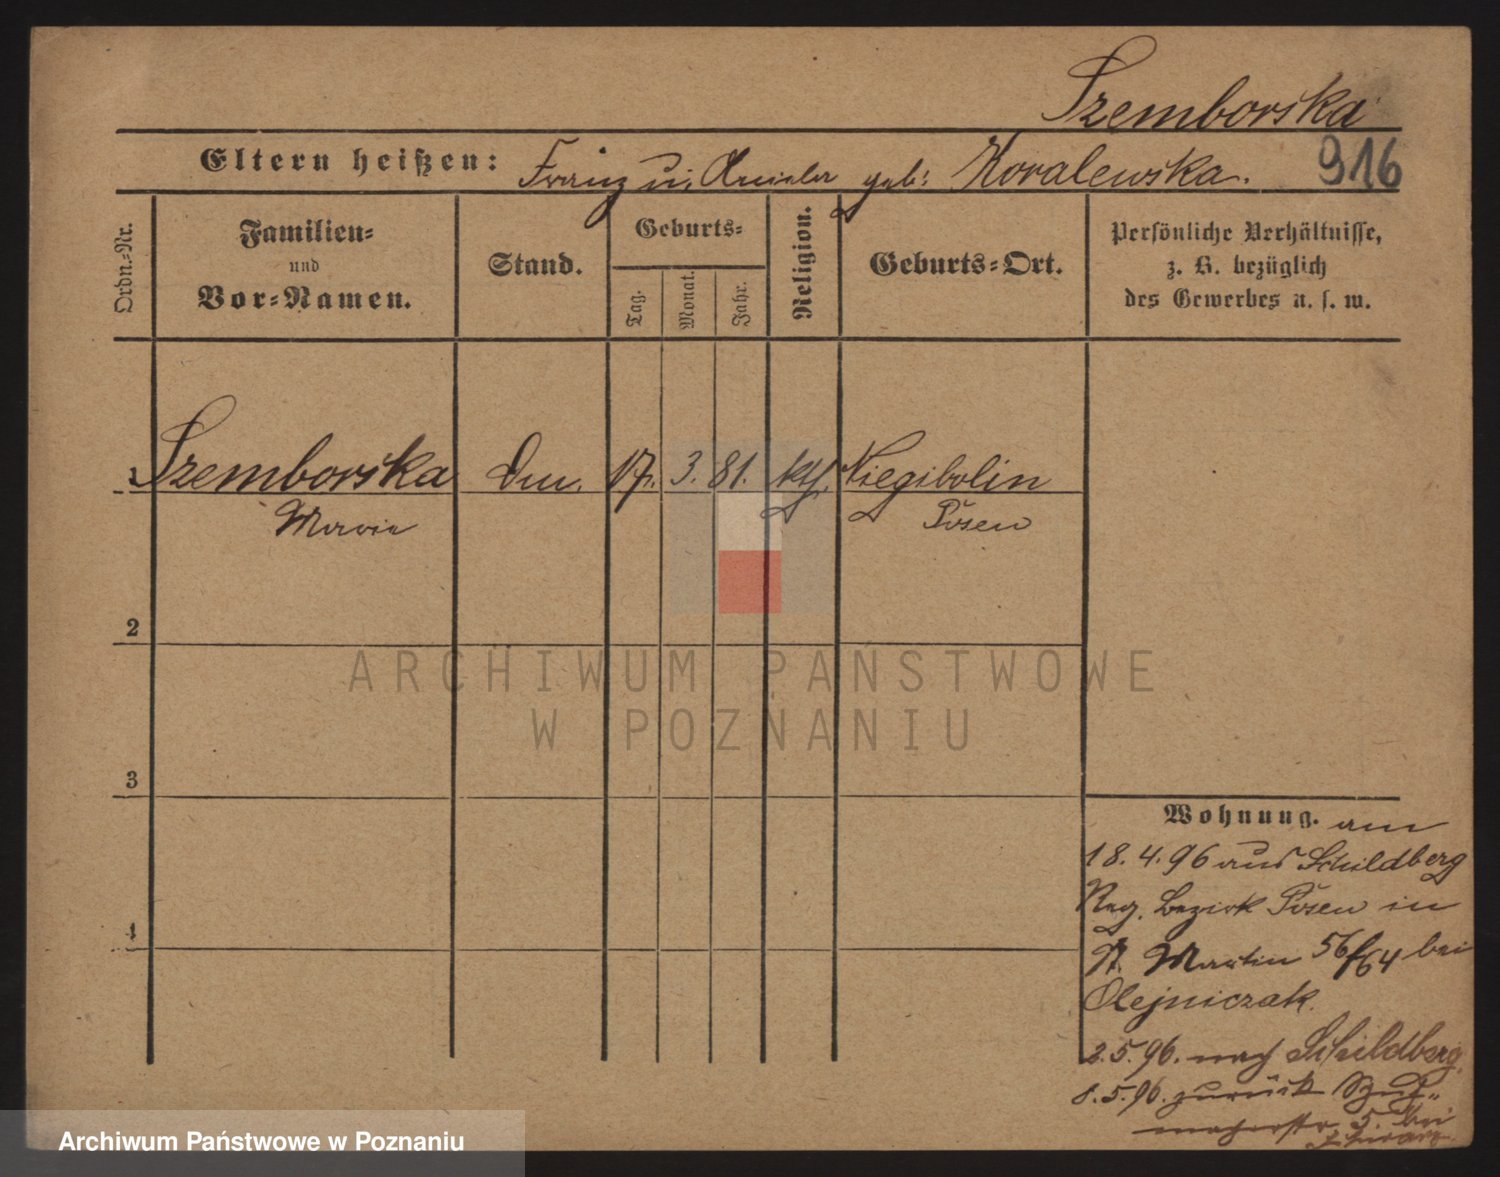 Szemborska
Eltern heißen: Franz u. geb: Kovalewska. 916
Ordn.-Nr.
Familien-
und
Vor-Namen.
Stand.
Geburts-
Tag.
Monat.
Jahr.
Religion.
Geburts-Ort.
Persönliche Verhältnisse,
z. B. bezüglich
des Gewerbes u. s. w.
1 Szemborska 17. 3. 81. kth. Niegibolin
Marie Posen
2
3
4
Wohnung. am
18. 4. 96 aus Schildberg
Reg. Bezirk Posen in
St. Martin 56/64 bei
Olejniczak.
2. 5. 96. nach Schildberg.
8. 5. 96. zurück
5. bei
ARCHIWUM PAŃSTWOWE
W POZNANIU
Archiwum Państwowe w Poznaniu